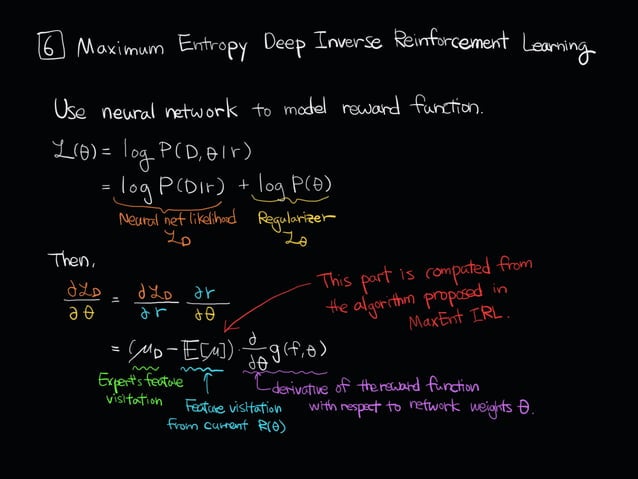 6 Maximum Entropy Deep Inverse Reinforcement Learning
Use neural network to model reward function.
ℒ(θ) = log P(D, θ | r)
= log P(D|r) + log P(θ)
Neural net likelihood Regularizer
ℒ_D ℒ_θ
Then,
∂ℒ_D/∂θ = ∂ℒ_D/∂r ∂r/∂θ
This part is computed from
the algorithm proposed in
MaxEnt IRL.
= (μ_D − E[μ]) · ∂/∂θ g(f, θ)
Expert's feature
visitation
Feature visitation
from current R(θ)
derivative of the reward function
with respect to network weights θ.